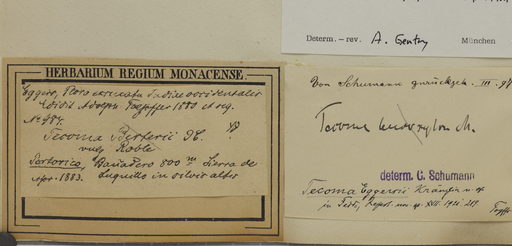 Determ. – rev. A. Gentry München
HERBARIUM REGIUM MONACENSE.
Eggers, Flora exsiccata Indiae occidentalis
edidit Adolph Toepffer 1880 et seq.
No 987.
Tecoma Berterii DC.
vulg. Roble
Portorico, 800 m Sierra de
Luquillo in silvis altis
apr. 1883.
Von Schumann zurückgek. III. 97
Tecoma leucoxylon M.
determ. C. Schumann
Tecoma Eggersii Kränzlin n. sp.
in Fedd. Repert. nov. sp. XVII 1921 219